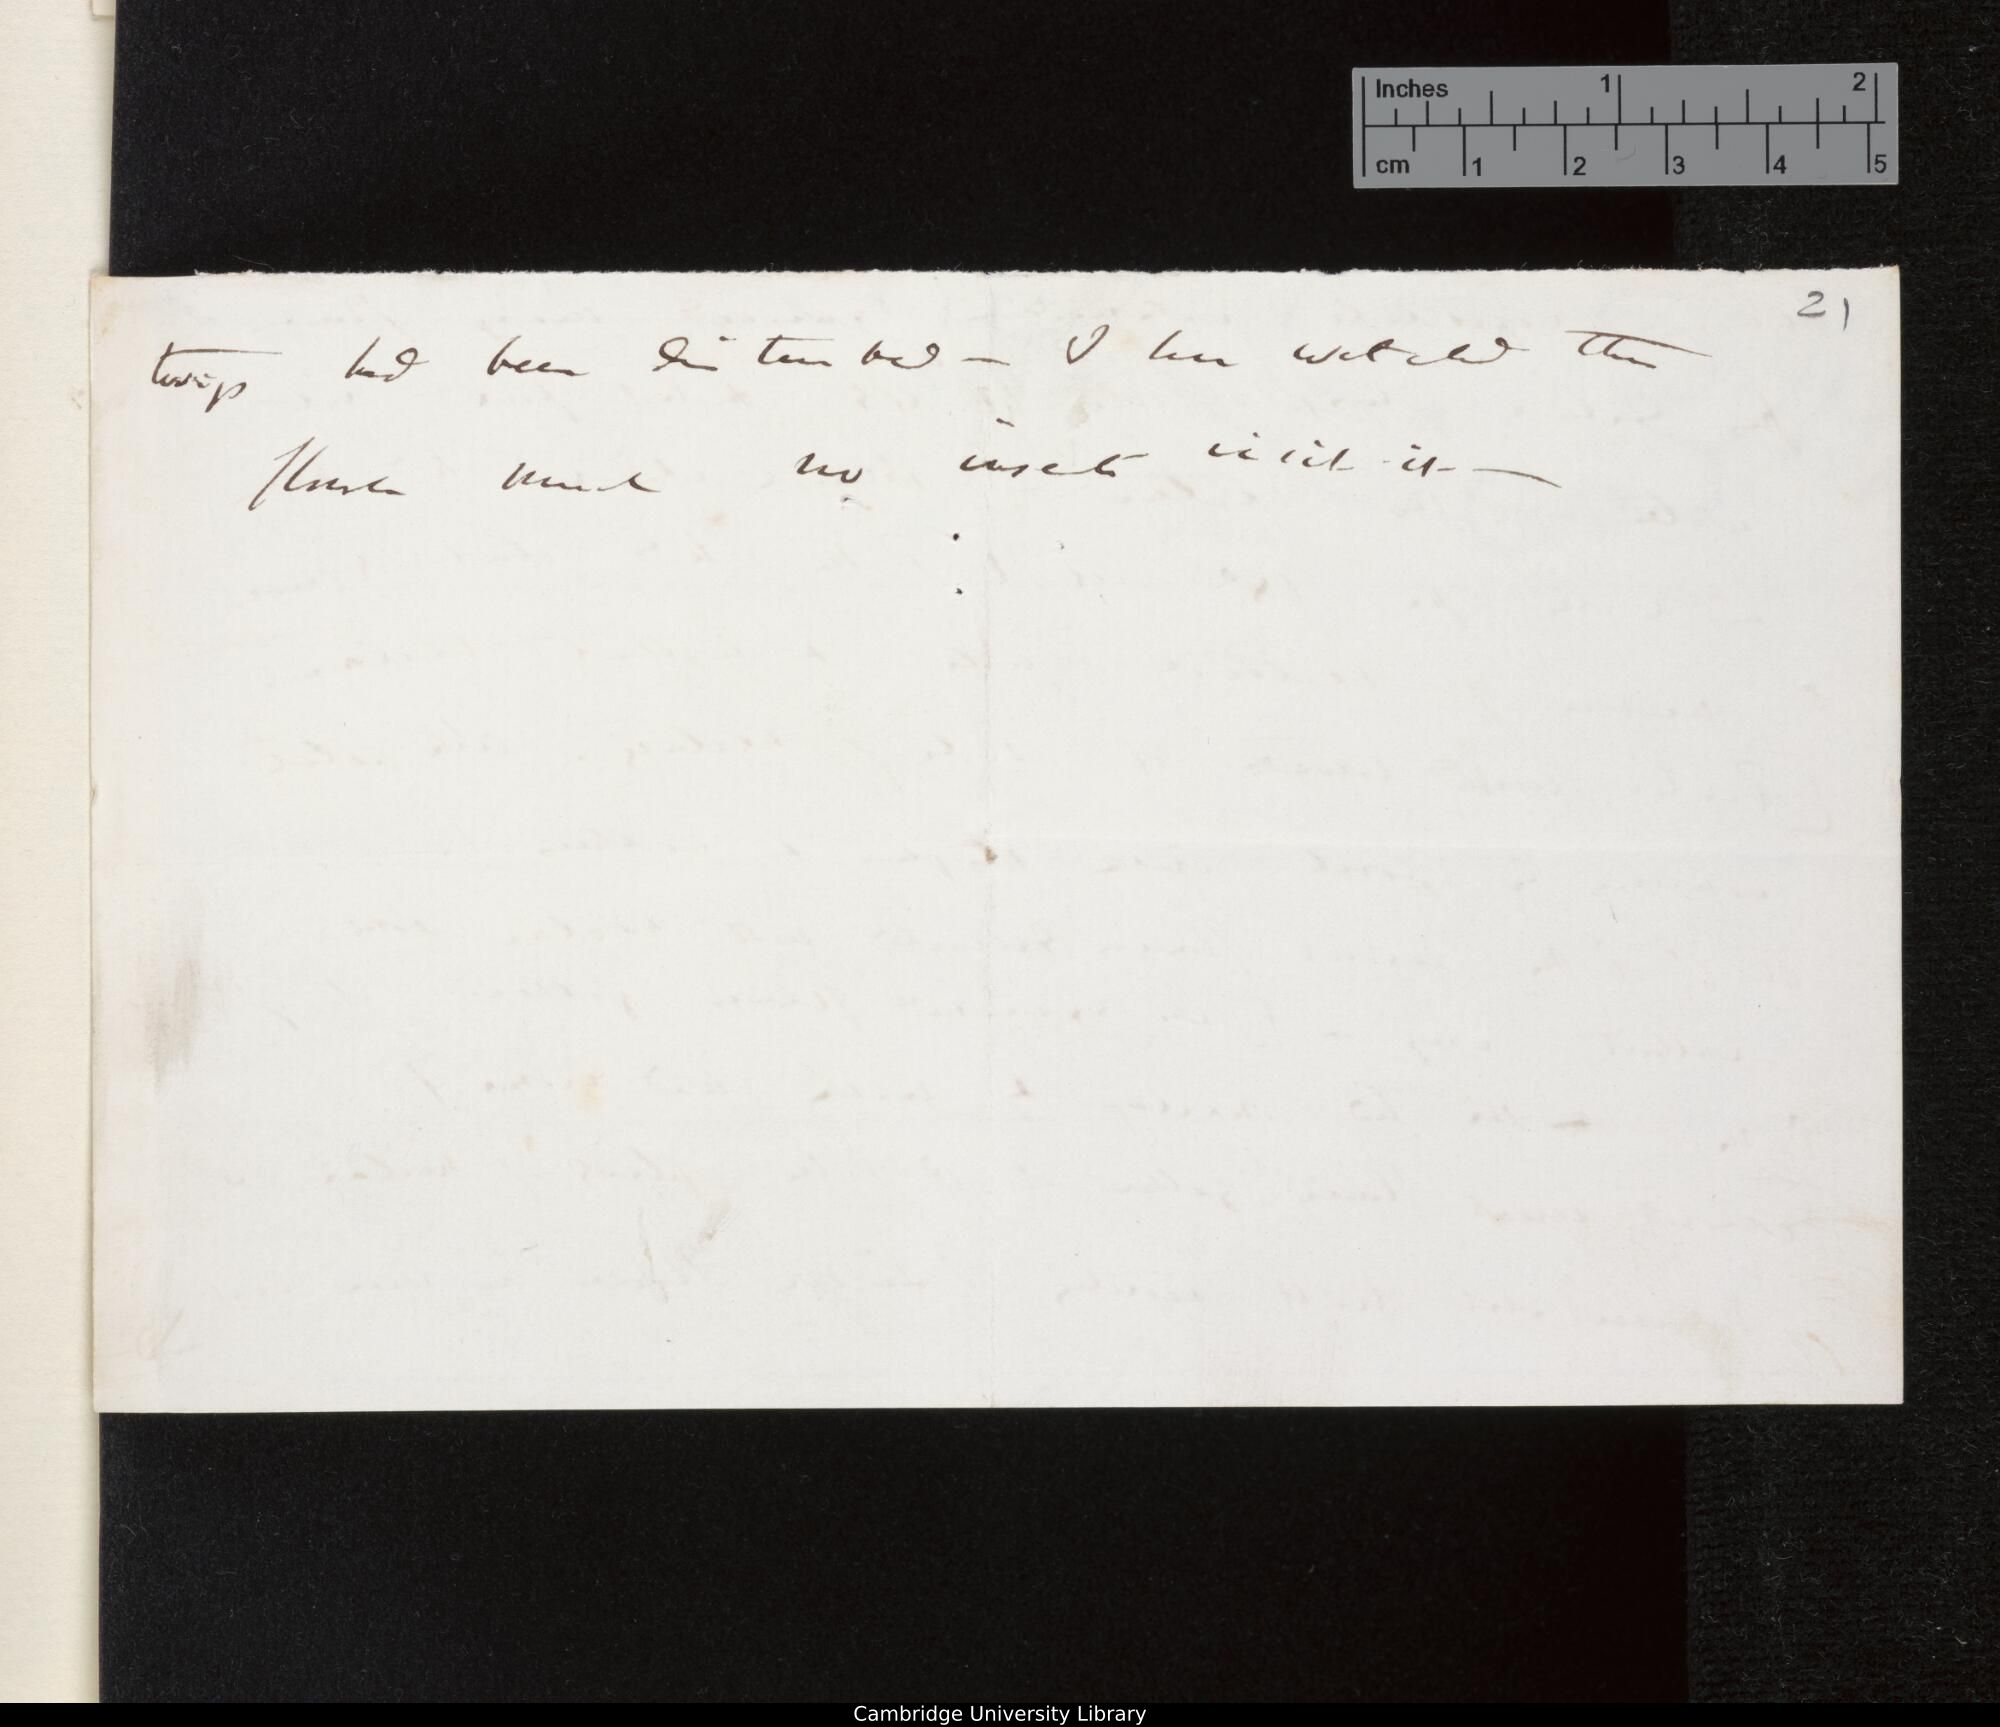 Inches 1 2
cm 1 2 3 4 5
21
twigs had been disturbed — I have watched this
flower much no insects visit it —
Cambridge University Library